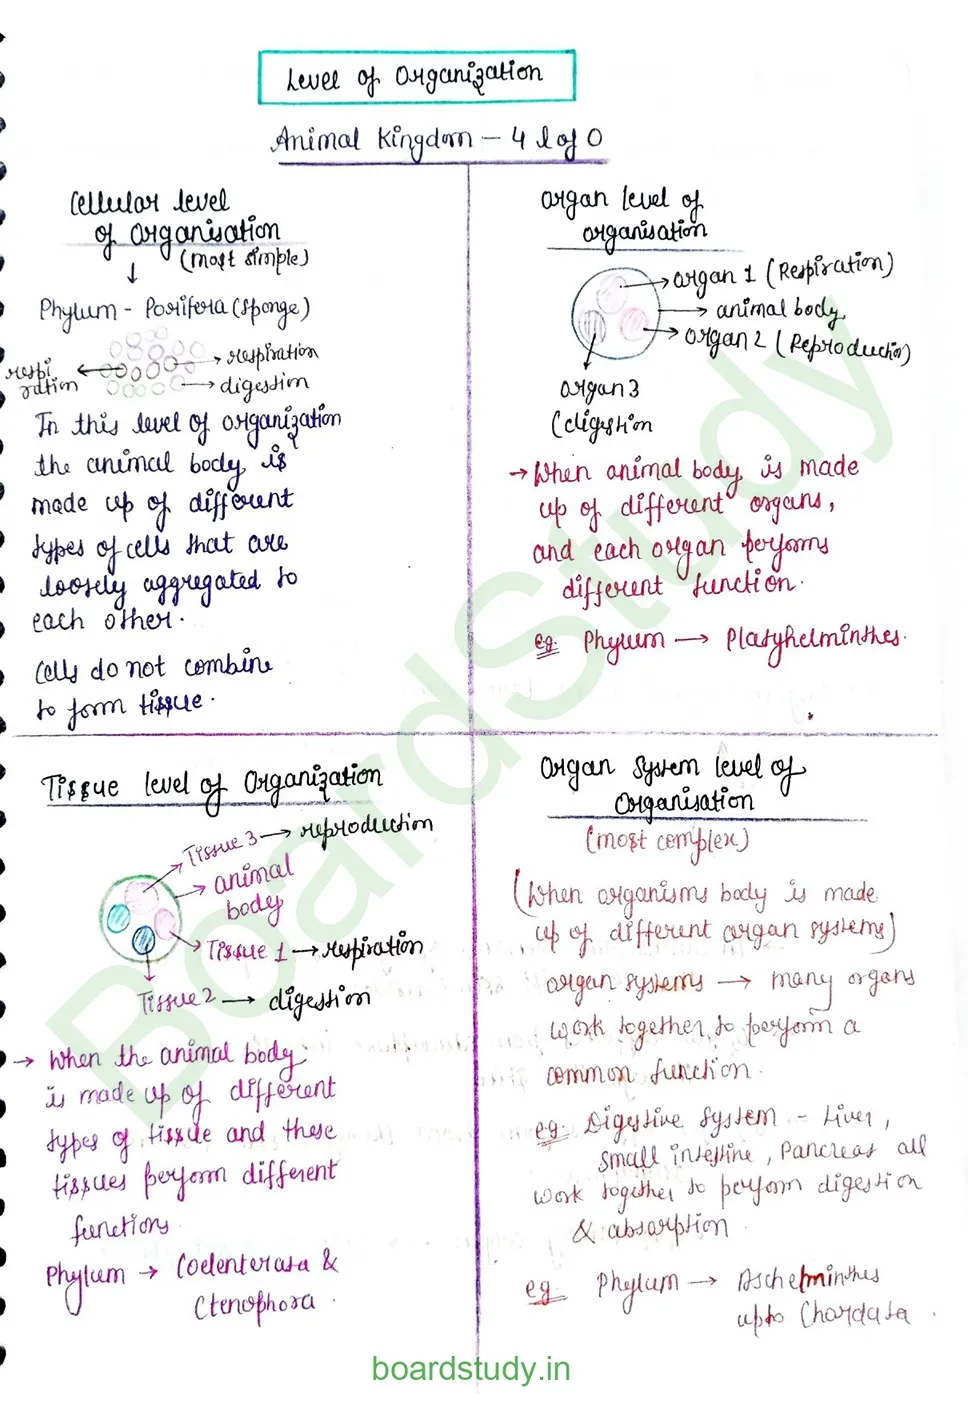 Level of Organization
Animal Kingdom – 4 l of O
Cellular level
of Organisation
(most simple)
↓
Phylum - Porifera (Sponge)
respi
ration
→ respiration
→ digestion
In this level of organization
the animal body is
made up of different
types of cells that are
loosely aggregated to
each other.
Cells do not combine
to form tissue.
Organ level of
organisation
→ organ 1 (Respiration)
→ animal body
→ organ 2 (Reproduction)
organ 3
(digestion
→ When animal body is made
up of different organs,
and each organ performs
different function.
eg. Phylum → Platyhelminthes.
Tissue level of Organization
Tissue 3 → reproduction
animal
body
Tissue 1 → respiration
Tissue 2 → digestion
→ When the animal body
is made up of different
types of tissue and these
tissues perform different
functions
Phylum → Coelenterata &
Ctenophora.
Organ System level of
Organisation
(most complex)
(When organisms body is made
up of different organ systems)
organ systems → many organs
work together to perform a
common function.
eg: Digestive System - Liver,
small intestine, Pancreas all
work together to perform digestion
& absorption.
eg. Phylum → Aschelminthes
upto Chordata.
BoardStudy
boardstudy.in